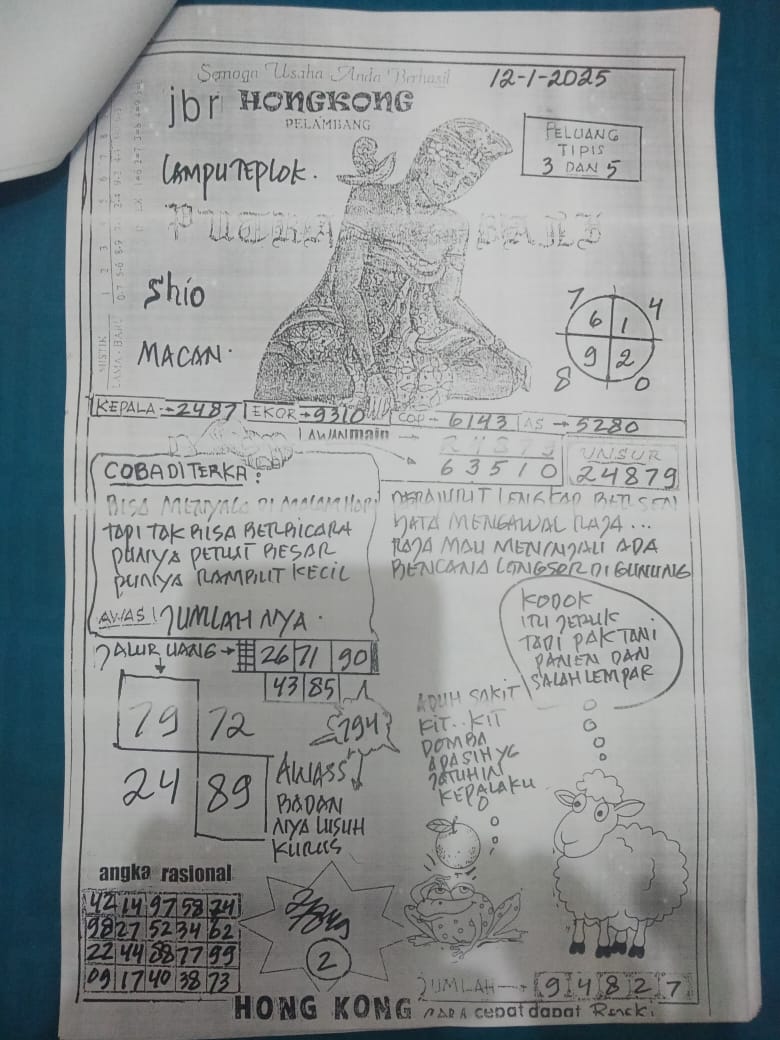 Semoga Usaha Anda Berhasil
12-1-2025
jbr HONGKONG
PELAMBANG
PELUANG
TIPIS
3 DAN 5
LAMPU TEPLOK.
PUTRA BALI
Shio
MACAN.
7 4
6 1
9 2
8 0
MISTIK
LAMA - BARU
KEPALA → 2487 EKOR → 9310 COP → 6143 AS → 5280
LAWAN main →
24873
63510
UNSUR
24879
COBA DI TERKA :
BISA MENYALA DI MALAM HARI
TAPI TAK BISA BERBICARA
PUNYA PERUT BESAR
PUNYA RAMBUT KECIL
AWAS! JUMLAH NYA.
PRAJURIT LENGKAP BERSEN
JATA MENGAWAL RAJA...
RAJA MAU MENINJAU ADA
BENCANA LONGSOR DI GUNUNG
JALUR UANG → 26 71 90
43 85
79 72
24 89
794
AWASS
BADAN
NYA LUSUH
KURUS
KODOK
ITU JERUK
TADI PAK TANI
PANEN DAN
SALAH LEMPAR
ADUH SAKIT
KIT..KIT
DOMBA
APASIH YG
JATUHIN
KEPALAKU
angka rasional
42 14 97 58 74
98 27 52 34 62
22 44 88 77 99
09 17 40 38 73
2
JUMLAH → 9 4 8 2 7
HONG KONG CARA cepat dapat Rezeki